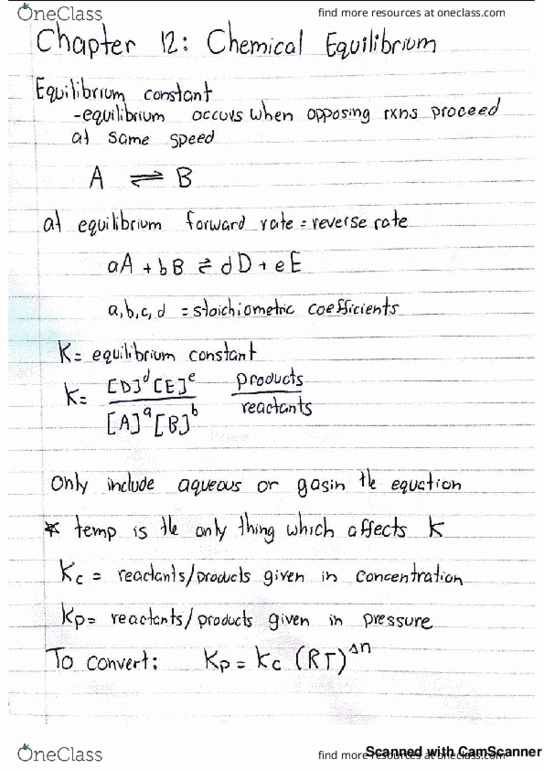 OneClass
find more resources at oneclass.com
Chapter 12: Chemical Equilibrium
Equilibrium constant
-equilibrium occurs when opposing rxns proceed
at same speed
A ⇌ B
at equilibrium forward rate = reverse rate
aA + bB ⇌ dD + eE
a,b,c,d = stoichiometric coefficients
K = equilibrium constant
K = [D]^d [E]^e / [A]^a [B]^b products / reactants
Only include aqueous or gas in the equation
* temp is the only thing which affects K
Kc = reactants/products given in concentration
Kp = reactants/products given in pressure
To convert: Kp = Kc (RT)^Δn
OneClass
find more resources at oneclass.com
Scanned with CamScanner